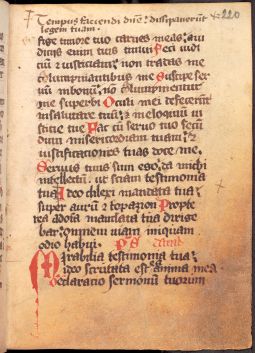 Tempus faciendi dnē: dissipauerūt
legem tuam. 220
fige timore tuo carnes meas: a iu
dicijs enim tuis timui Feci iudi
ciū et iusticiam: non tradas me
calumpniantibus me Suscipe ser
uū tuum in bonū: nō calumpnientur
me superbi Oculi mei defecerūt
in salutare tuū: et in eloquiū ius
ticie tue Fac cū seruo tuo secū
dum misericordiam tuam: et
iustificationes tuas doce me.
Seruus tuus sum ego: da michi
intellectū ut sciam testimonia
tua Ideo dilexi mandata tua:
super aurū et topazion Propte
rea ad oīa mandata tua dirige
bar: omnem uiam iniquam
odio habui. ps
Mirabilia testimonia tua:
ideo scrutata est ea anima mea
Declaratio sermonū tuorum